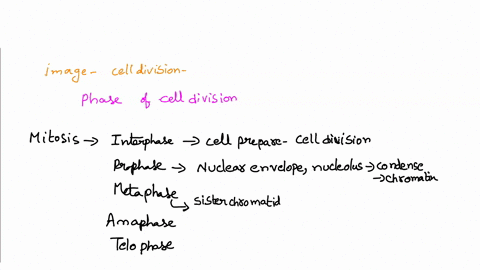 image - cell division -
Phase of cell division
Mitosis → Interphase → cell prepare - cell division
Prophase → Nuclear envelope, nucleolus → condense
→ chromatin
Metaphase
↳ sister chromatid
Anaphase
Telophase